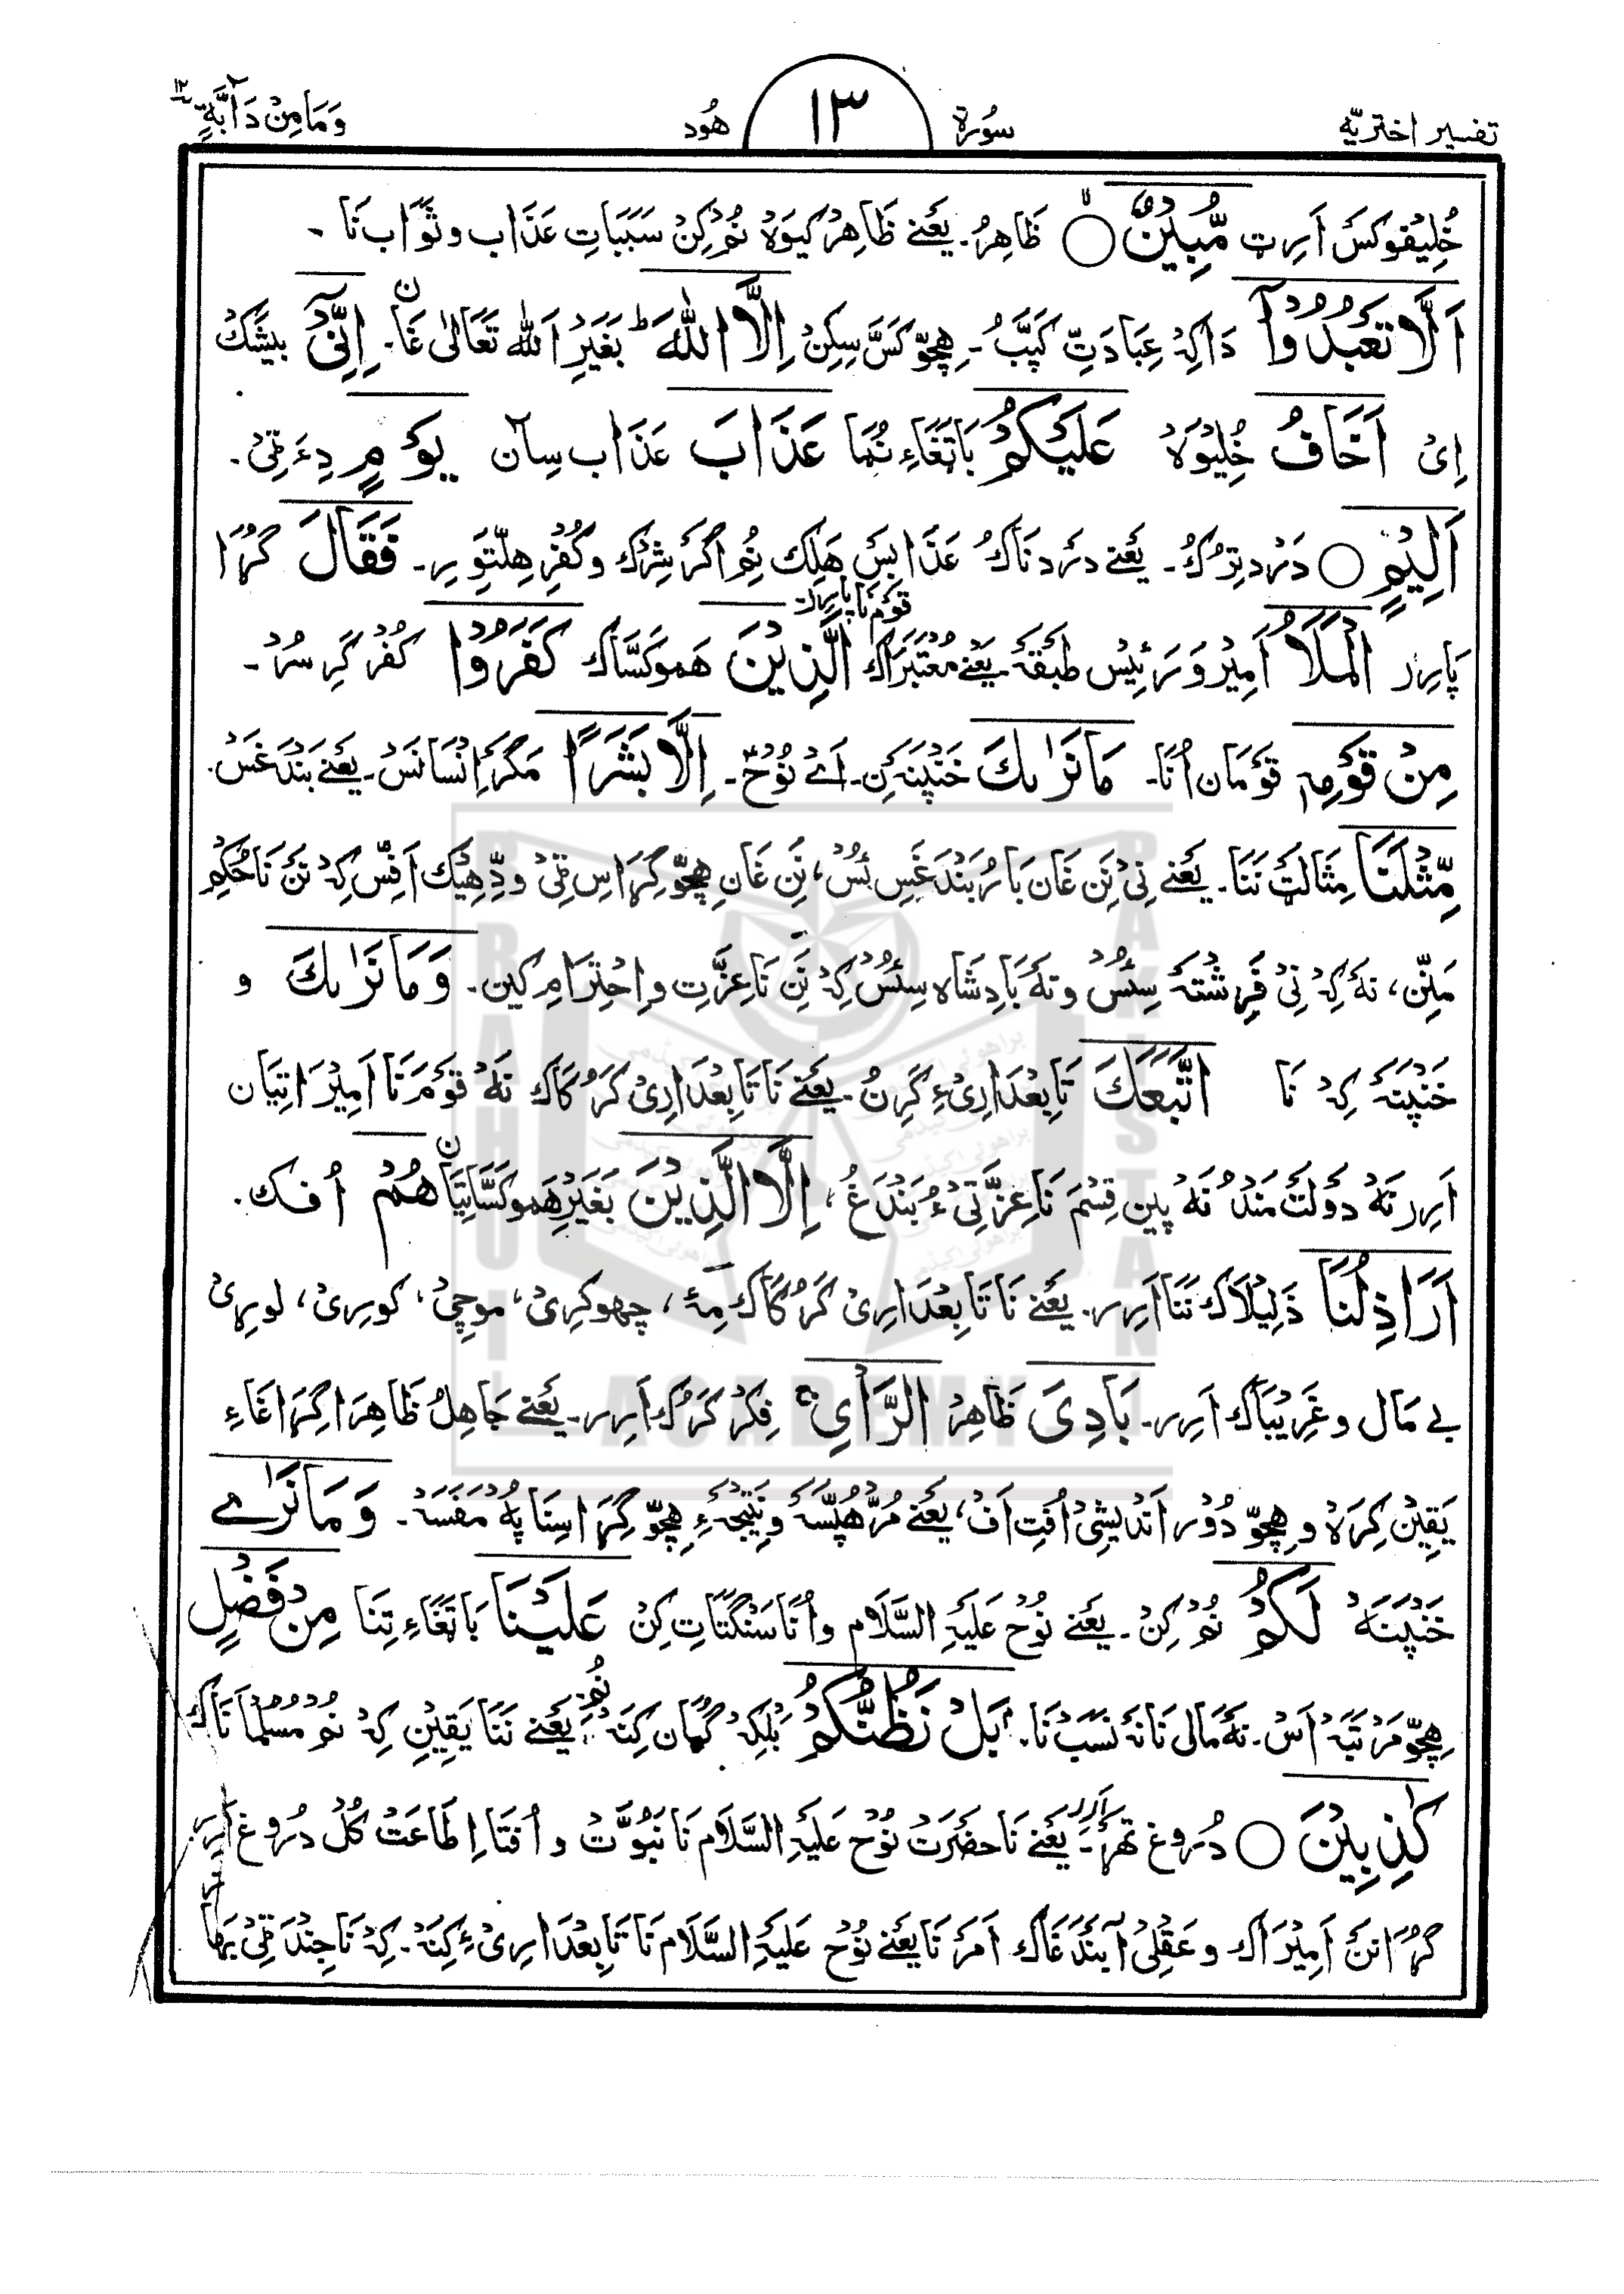 تفسیر اختریّه سُورة ١٣ هُود وَمَا مِنْ دَآبَّةٍ ١٢
خُلِیفوکسَ اَرِت مُّبِیْنٌ ○ ظَاهِرُ۔ یَعْنے ظَاهِرْ کیوَهْ نُمْ کِنْ سَبَبَاتِ عَذَاب و ثَوَاب نَا ۔
اَلَّا تَعْبُدُوْآ دَاکِهْ عِبَادَتِ کَپَّبُ ۔ هِچّو کَسَّ سِکِنْ اِلَّا اللّٰهَ ط بَغَیْرِ اَللّٰه تَعَالٰی غَا ن ۔ اِنِّیْٓ بیشَکْ
اِیْ اَخَافُ خُلِیْوَهْ عَلَیْکُمْ بَاتِغَاءِ نُمَا عَذَابَ عَذَاب سِان یَوْمٍ دِءَ ٹیْ ۔
اَلِیْمٍ ○ دَرْد تِرُکُ ۔ یَعْنے دَرْدنَاکُ عَذَابَسِ هَلِك نُمِ اَگَرْ شِرْك و کُفْرِ هِلّتوِرِ ۔ فَقَالَ گُرَا
قَوْم نَا پَارِرْ
پَارِر الْمَلَأُ اَمِیْر وَ رَئِیْس طَبْقَه ۔ یَعْنے مُعْتَبَرَاك الَّذِیْنَ هَمو کَسَّاك کَفَرُوْا کُفْر کَرِ سُرْ ۔
مِنْ قَوْمِهٖ قَوْمَان اُنَا ۔ مَا نَرٰىكَ خَنْپَنَه کِنْ ۔ اَے نُوْحؑ ۔ اِلَّا بَشَرًا مَگَرْ اِنْسَانَسْ ۔ یَعْنے بَنْدَغَسْ ۔
مِّثْلَنَا مِثَالَتْ نَنَا ۔ یَعْنے نِیْ نَن غَان بَارُ بَنْدَغَسِ ئسْ، نَن غَان هِچّو گِڑَاس ٹیْ ودِّهِیْك اَفِسْ کِهْ نَنْ نَا حُکْم
مَنِّن، نَه کِهْ نِیْ فَرِشْتَه سِئسْ و نَه بَادِشَاه سِئسْ کِهْ نَن نَا عِزَّت و اِحْتِرَامِ کین ۔ وَمَا نَرٰىكَ و
خَنْپَنَه کِهْ نَا اتَّبَعَكَ تَابِعْدَارِیْءِ کَرِنُ ۔ یَعْنے نَا تَابِعْدَارِیْ کَرُکَاك نَه قَوْمَنَا اَمِیْرَاتِیَان
اَرِر نَهْ دَوْلَتْ مَنْد نَهْ پِین قِسْمَ نَا عِزَّتِیْءُ بَنْدَغُ ، اِلَّا الَّذِیْنَ بَغَیْرِ هَمو کَسَّاتِیَا ن هُمْ اُفك ۔
اَرَاذِلُنَا ذَلِیْلَاك نَنَا اَرِر ۔ یَعْنے نَا تَابِعْدَارِیْ کَرُکَاك مِهْٓ ، چھوکرِیْ ، موچِیْ ، کورِیْ ، لورِیْ
بے مَال و غَرِیْبَاك اَرِر ۔ بَادِیَ ظَاهِرْ الرَّاْیِ ج فِکْر کَرُك اَرِر ۔ یَعْنے جَاهِلُ ظَاهِرَا گِڑَاغَاءِ
یَقِیْن کِرَهْ و هِچّو دُوْر اَنْدیشِیْ اُفتِ اَفْ ، یَعْنے مُرّ هُپَّسَهْ و نَتِیْجَهءِ هِچّو گِڑَاسِنَا پَهْ مَفَسَهْ ۔ وَمَا نَرٰے
خَنْپَنَهْ لَکُمْ نُمْ کِنْ ۔ یَعْنے نُوْح عَلَیْهِ السَّلَام و اُنَا سَنْگَتَاتِ کِنْ عَلَیْنَا بَاتِغَاءِ تِنَا مِنْ فَضْلٍ
هِچّو مَرْتَبَهْ اَسْ ۔ نَهْ مَالی نَا نَهْ نَسَبْ نَا ۔ بَلْ نَظُنُّکُمْ بَلْکِهْ گُمَان کِنَهْ نُمِ ۔ یَعْنے نَنَا یَقِیْنِ کِهْ نُمْ مُسْلْمَانَاك
کٰذِبِیْنَ ○ دُرُوغ تھڑْ اَرِر ۔ یَعْنے نَا حَضْرَتْ نُوْح عَلَیْهِ السَّلَام نَا نَبُوَّتْ و اُفتَا اِطَاعَتْ کُلْ دُرُوغ اَرِر
گُرَا نَنْ اَمِیْرَاك و عَقْلِیْ آ بَنْدَغَاك اَمَرْ نَا یَعْنے نُوْح عَلَیْهِ السَّلَام نَا تَابِعْدَارِیْءِ کِنَهْ ۔ کِهْ نَا جِنْدَ ٹیْ
BRAHUI ACADEMY PAKISTAN